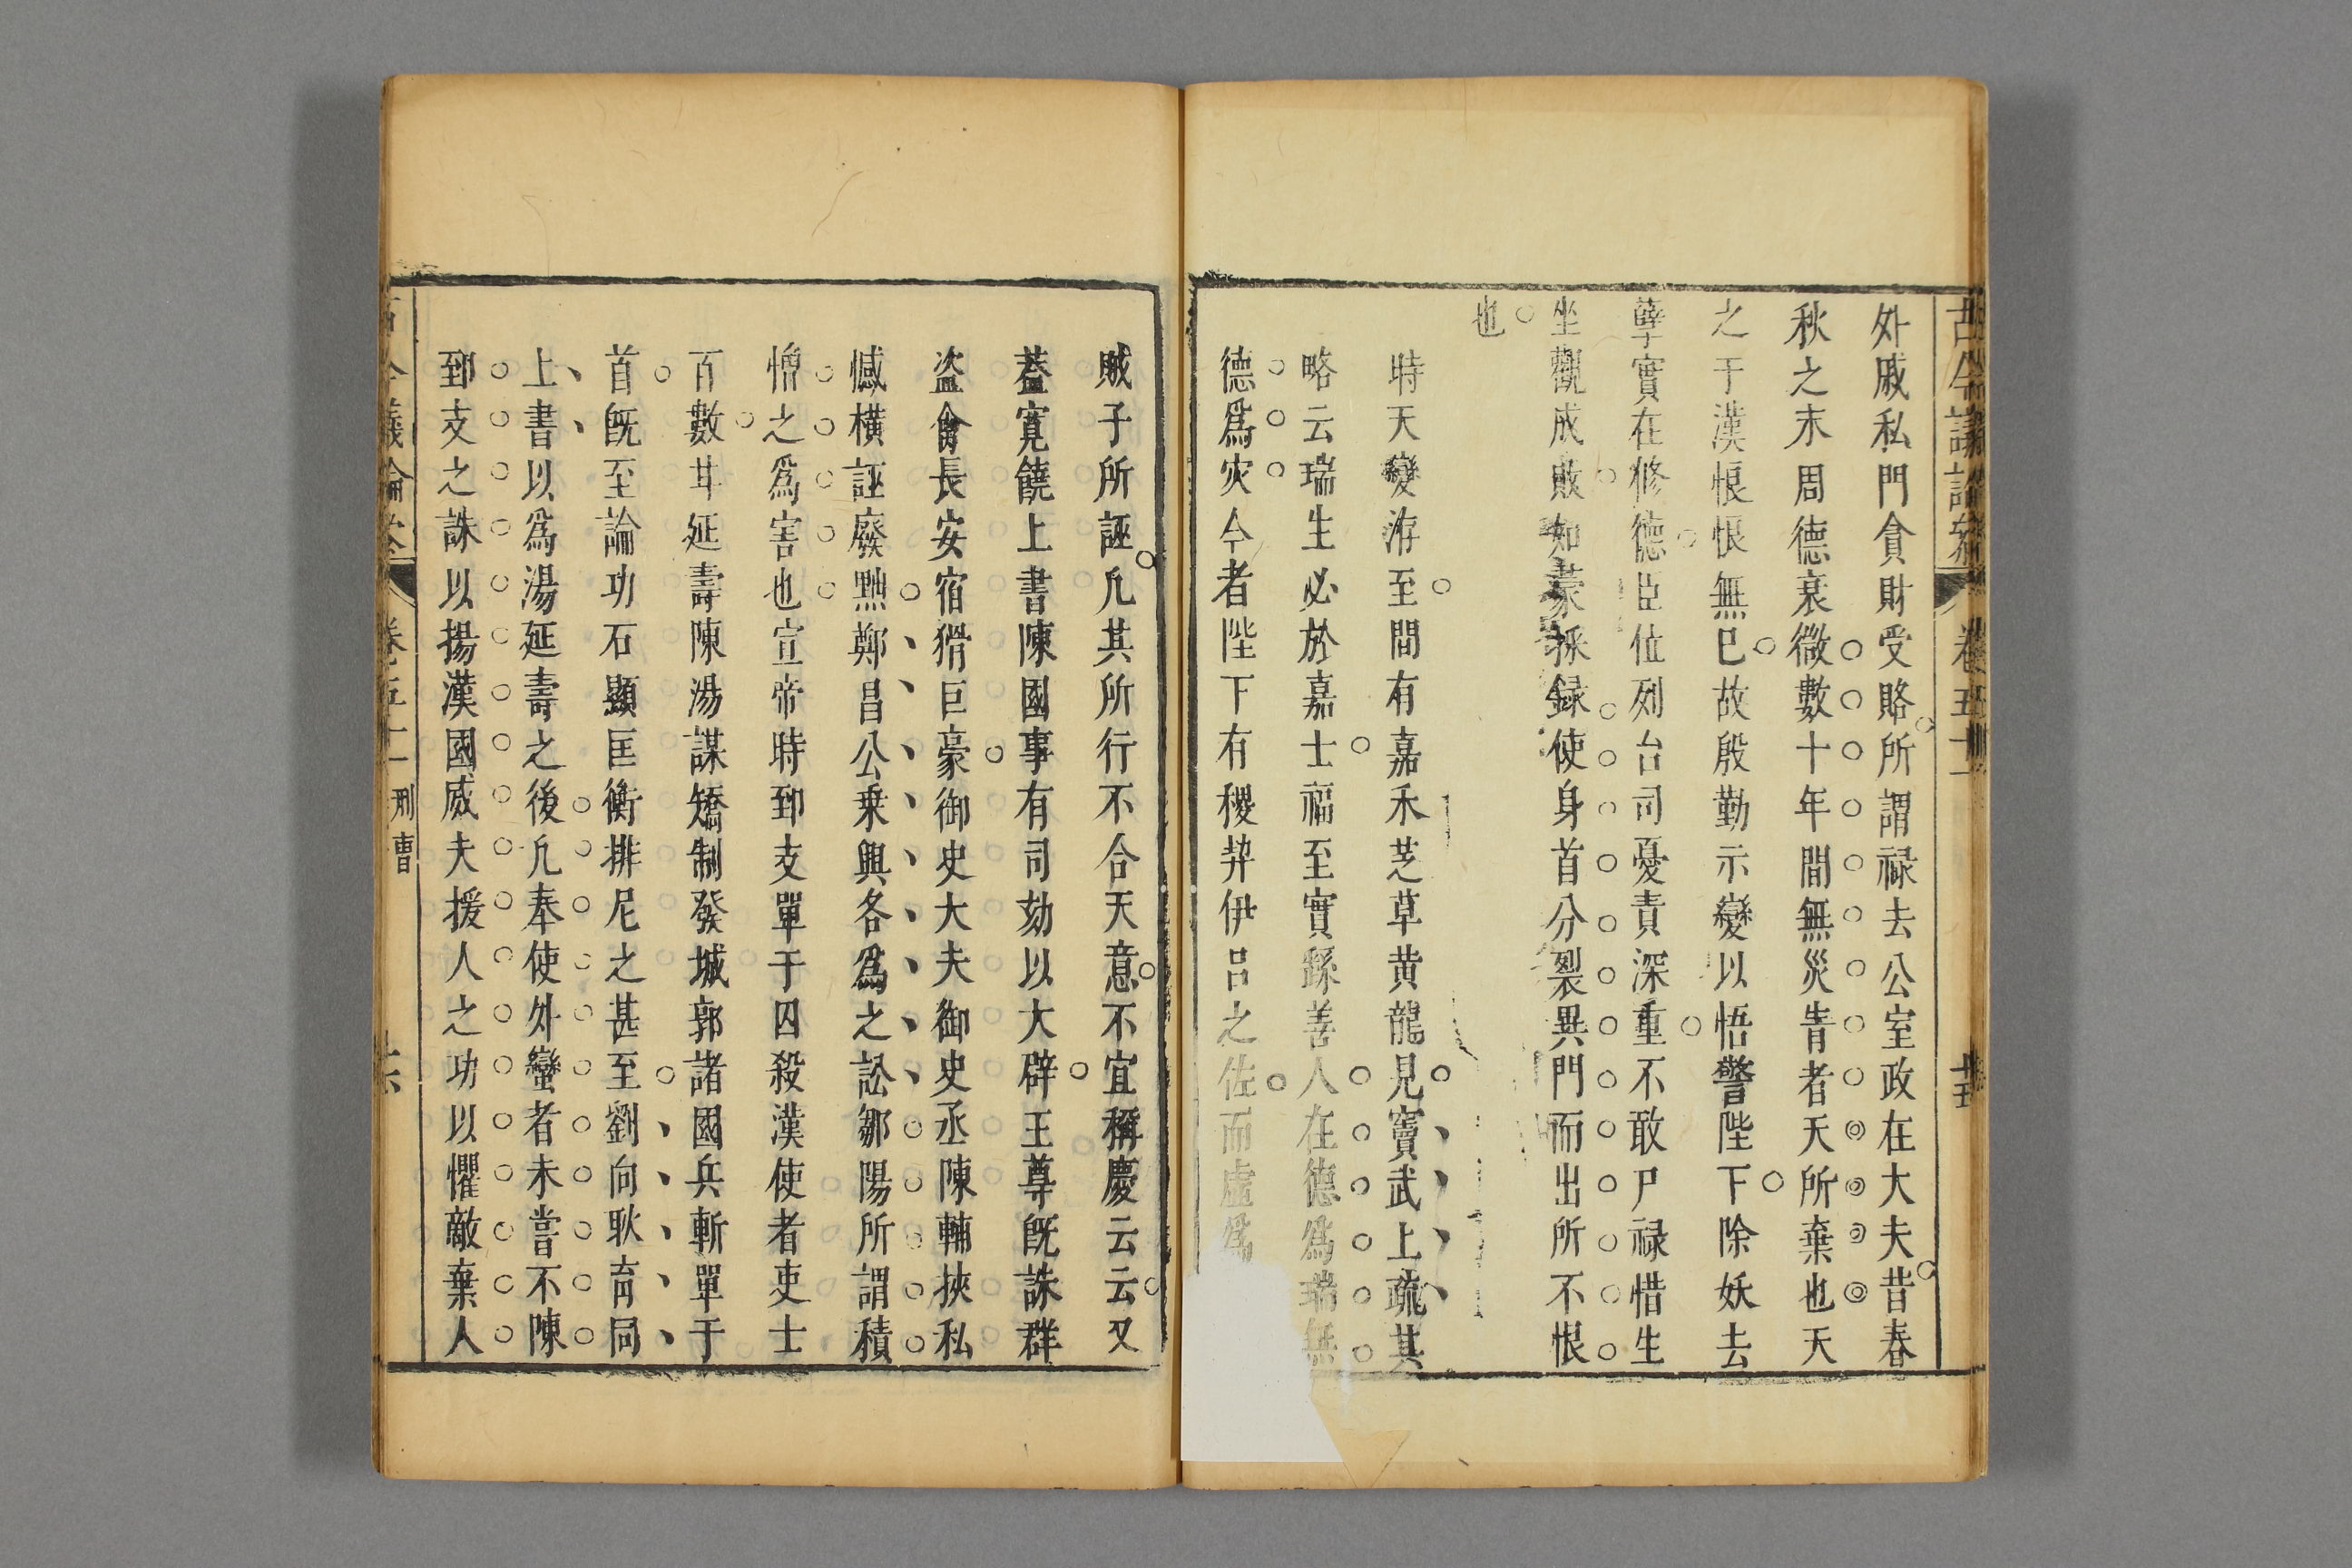 古今議論參 卷五十一 十五
外戚私門貪財受賂所謂祿去公室政在大夫昔春
秋之末周德衰微數十年間無災眚者天所棄也天
之于漢恨恨無已故殷勤示變以悟警陛下除妖去
孽實在修德臣位列台司憂責深重不敢尸祿惜生
坐觀成敗如蒙採録使身首分裂異門而出所不恨
也
時天變洊至間有嘉禾芝草黄龍見竇武上疏其
略云瑞生必於嘉士福至實繇善人在德爲瑞無
德爲灾今者陛下有稷挈伊呂之佐而虛爲
賊子所誣凢其所行不合天意不宜稱慶云云又
葢寛饒上書陳國事有司劾以大辟王尊旣誅群
盗禽長安宿猾巨豪御史大夫御史丞陳輔挾私
憾橫誣廢黜鄭昌公乗興各爲之訟鄒陽所謂積
憎之爲害也宣帝時郅支單于囚殺漢使者吏士
百數甘延壽陳湯謀矯制發城郭諸國兵斬單于
首旣至論功石顯匡衡排尼之甚至劉向耿育同
上書以爲湯延壽之後凢奉使外蠻者未嘗不陳
郅支之誅以揚漢國威夫援人之功以懼敵棄人
古今議論參 卷五十一 刑曹 十六